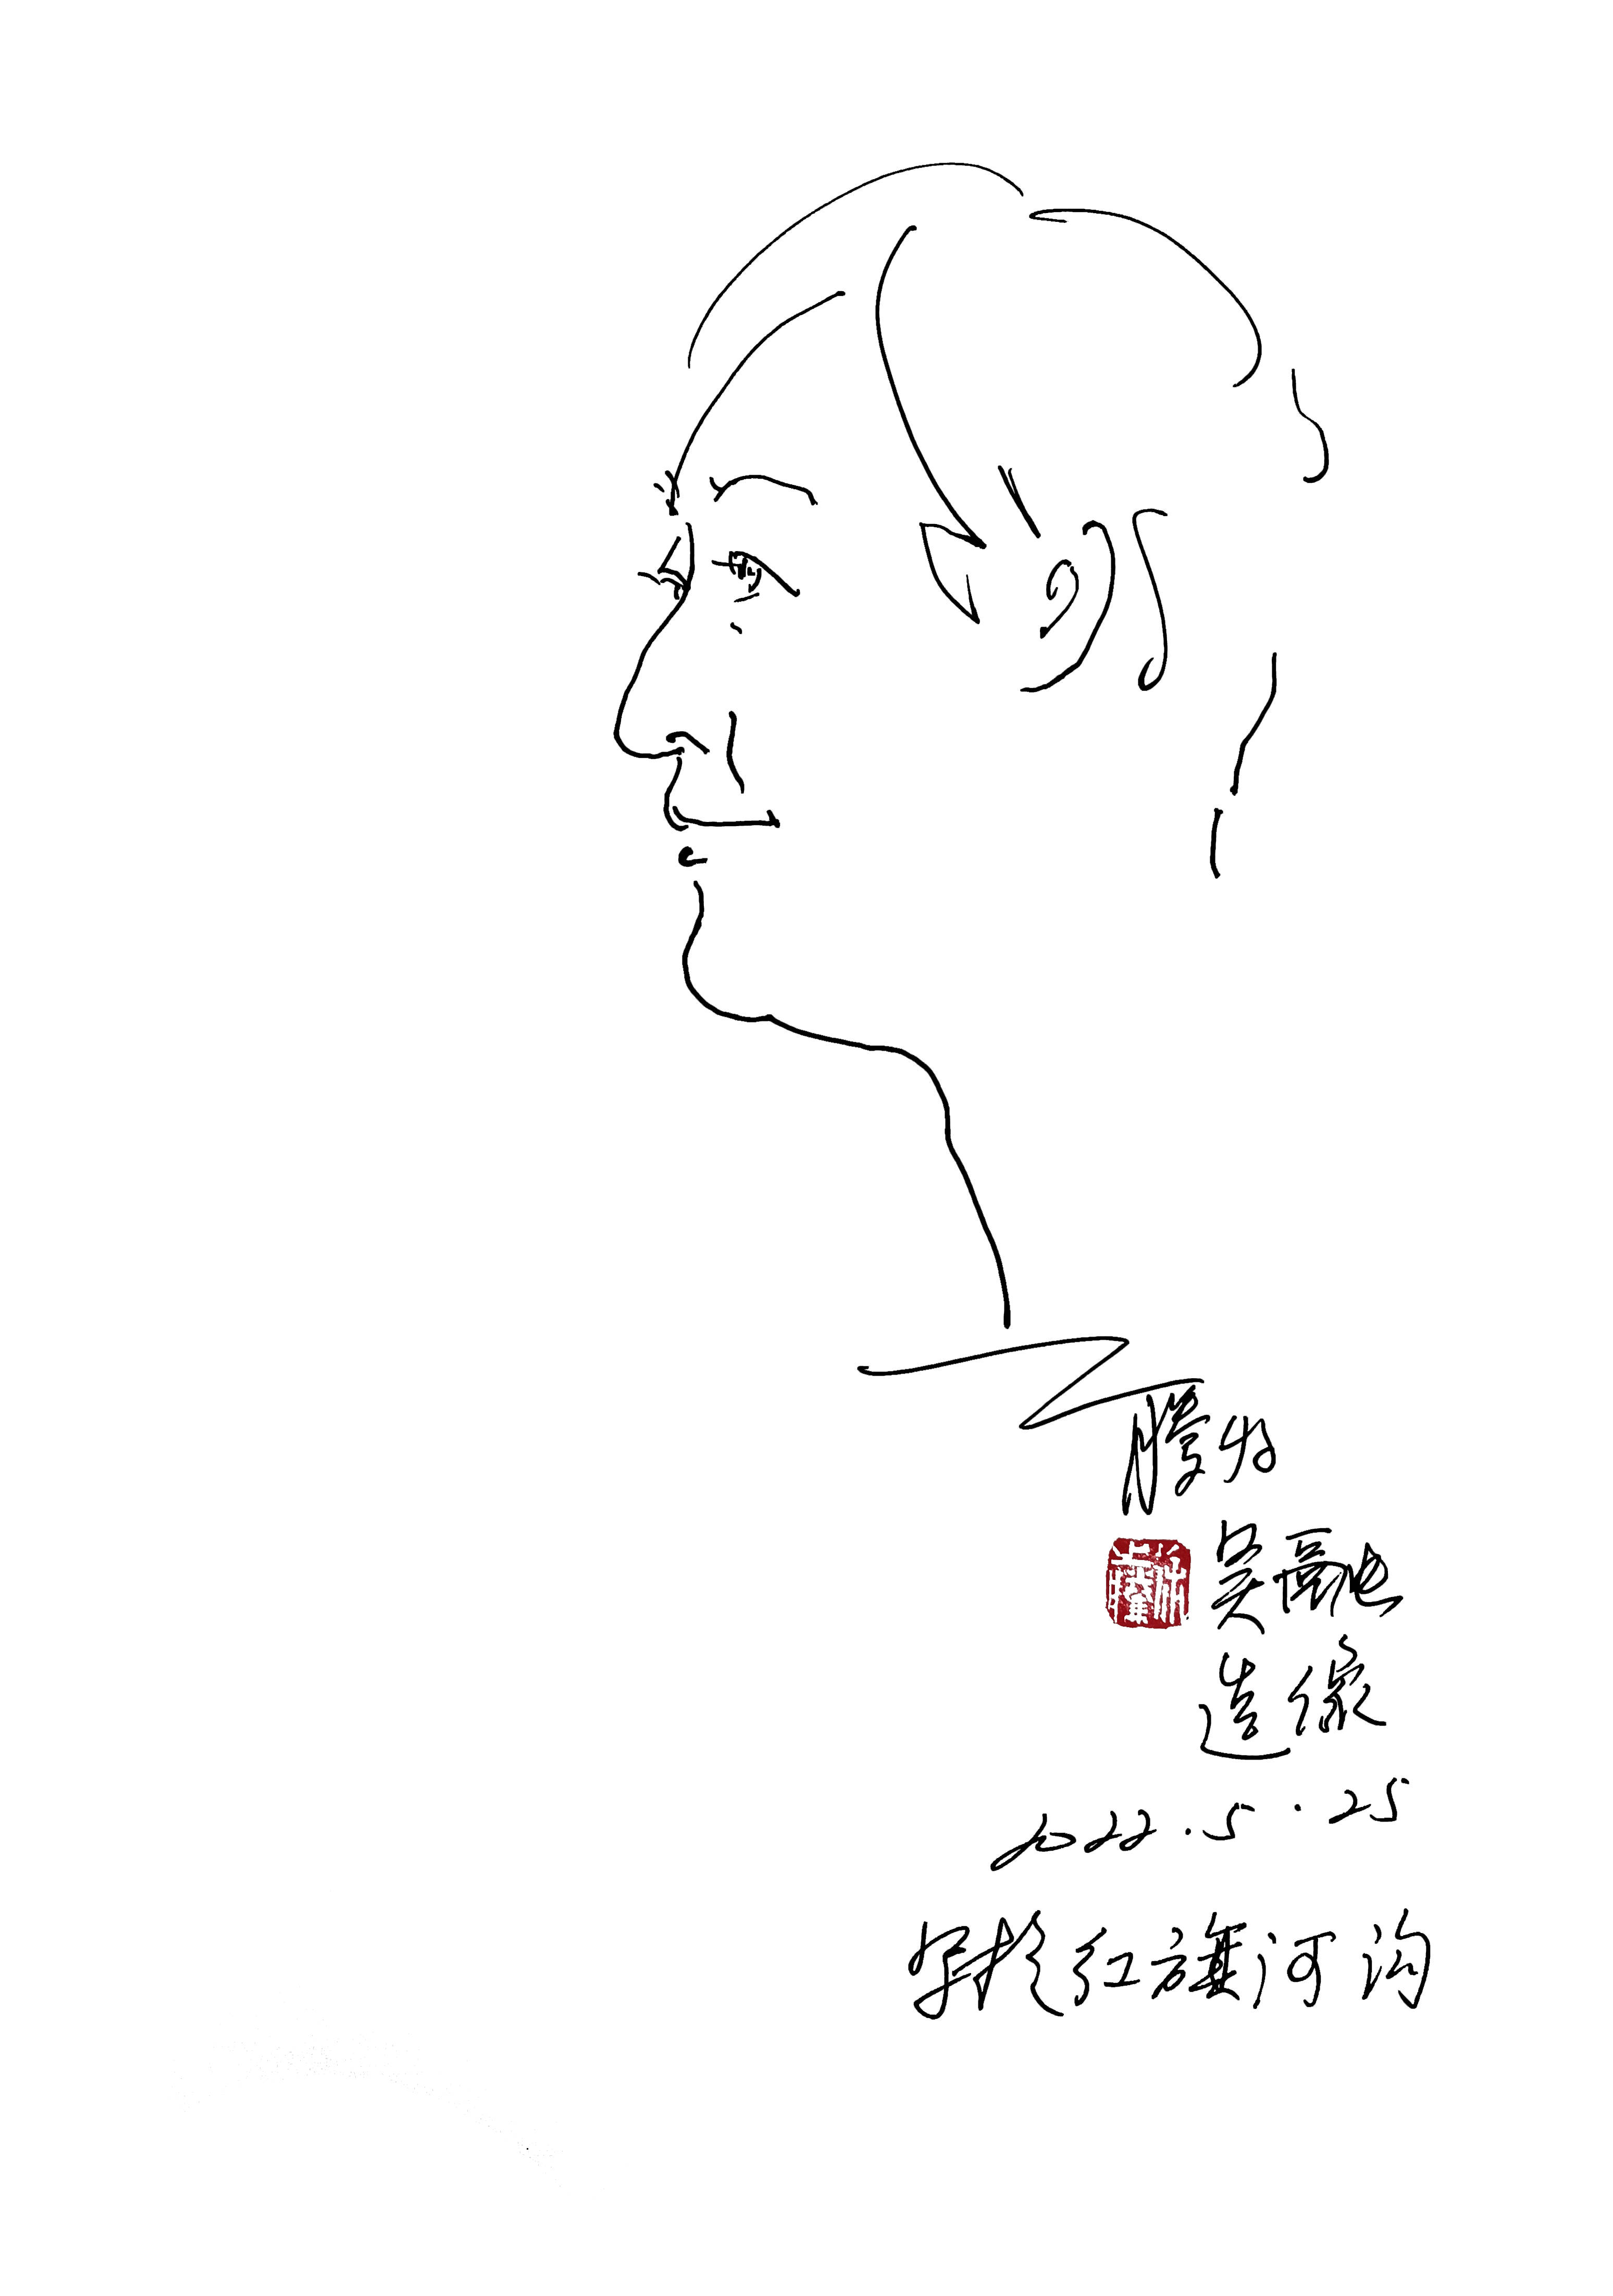 吴融
造像
2022.5.25
写于红旗河沟